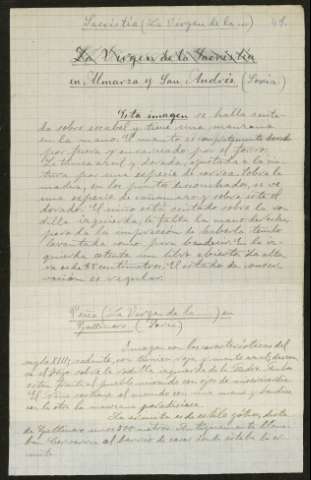 Sacristía (La Virgen de la —) 49.
La Virgen de la Sacristía
en Almarza y San Andrés. (Soria)
Esta imagen se halla senta-
da sobre escabel y tiene una manzana
en la mano. El manto es completamente dorado
por fuera y encarnado por el forro.
La túnica azul y dorada, ajustada a la cin-
tura por una especie de correa. Sobre la
madera, en los puntos descascados, se ve
una especie de cañamazo y sobre este el
dorado. El niño está sentado sobre la ro-
dilla izquierda, le falta la mano derecha,
pero da la impresión de haberla tenido
levantada como para bendecir. En la iz-
quierda ostenta un libro abierto. La altu-
ra es de 98 centímetros. El estado de conser-
vación es regular.
Peña (La Virgen de la ) en
(Soria)
Imagen con las características del
siglo XIII, sedente, con túnica roja y manto azul, descansa
el Hijo sobre la rodilla izquierda de la Madre. Ambos
están frente al pueblo mirando con ojos de misericordia.
El Niño sostiene el mundo con una mano y
con la otra la manzana
La ermita es de estilo gótico, dista
de unos 500 metros. Antiguamente llama-
ban al barrio de casas donde estaba la er-
mita.